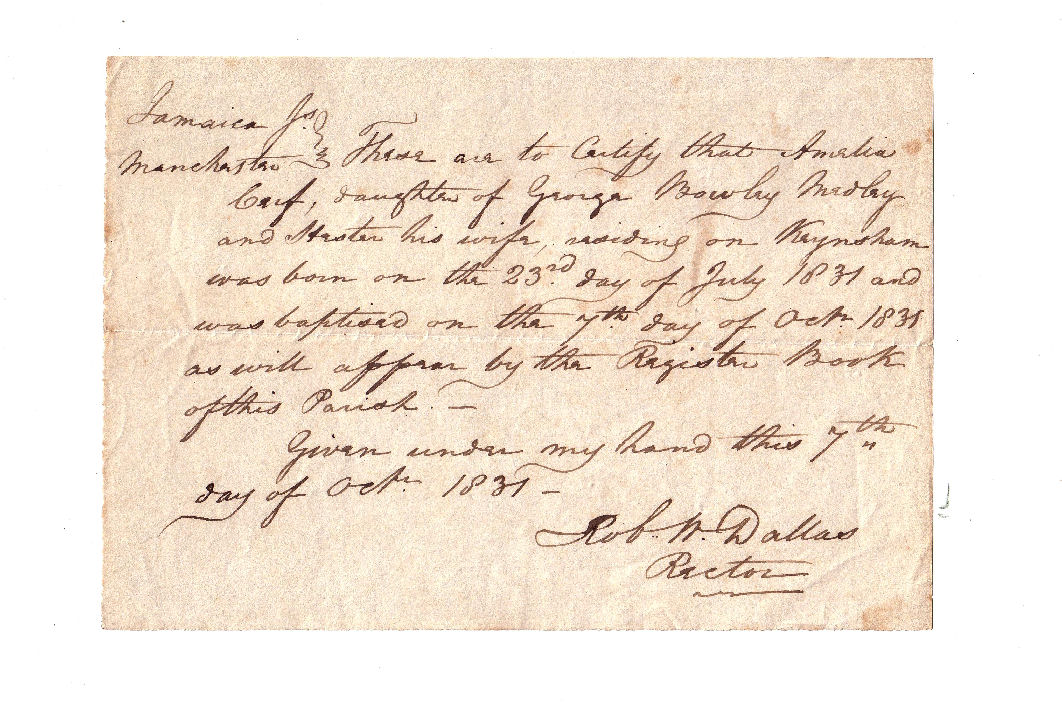 Jamaica Ss.
Manchester These are to Certify that Amelia
Ceif, daughter of George Bowley Medley
and Hester his wife, residing on Keynsham
was born on the 23rd day of July 1831 and
was baptised on the 7th day of Octr. 1831
as will appear by the Register Book
of this Parish. —
Given under my hand this 7th
day of Octr. 1831 —
Rob. W. Dallas
Rector